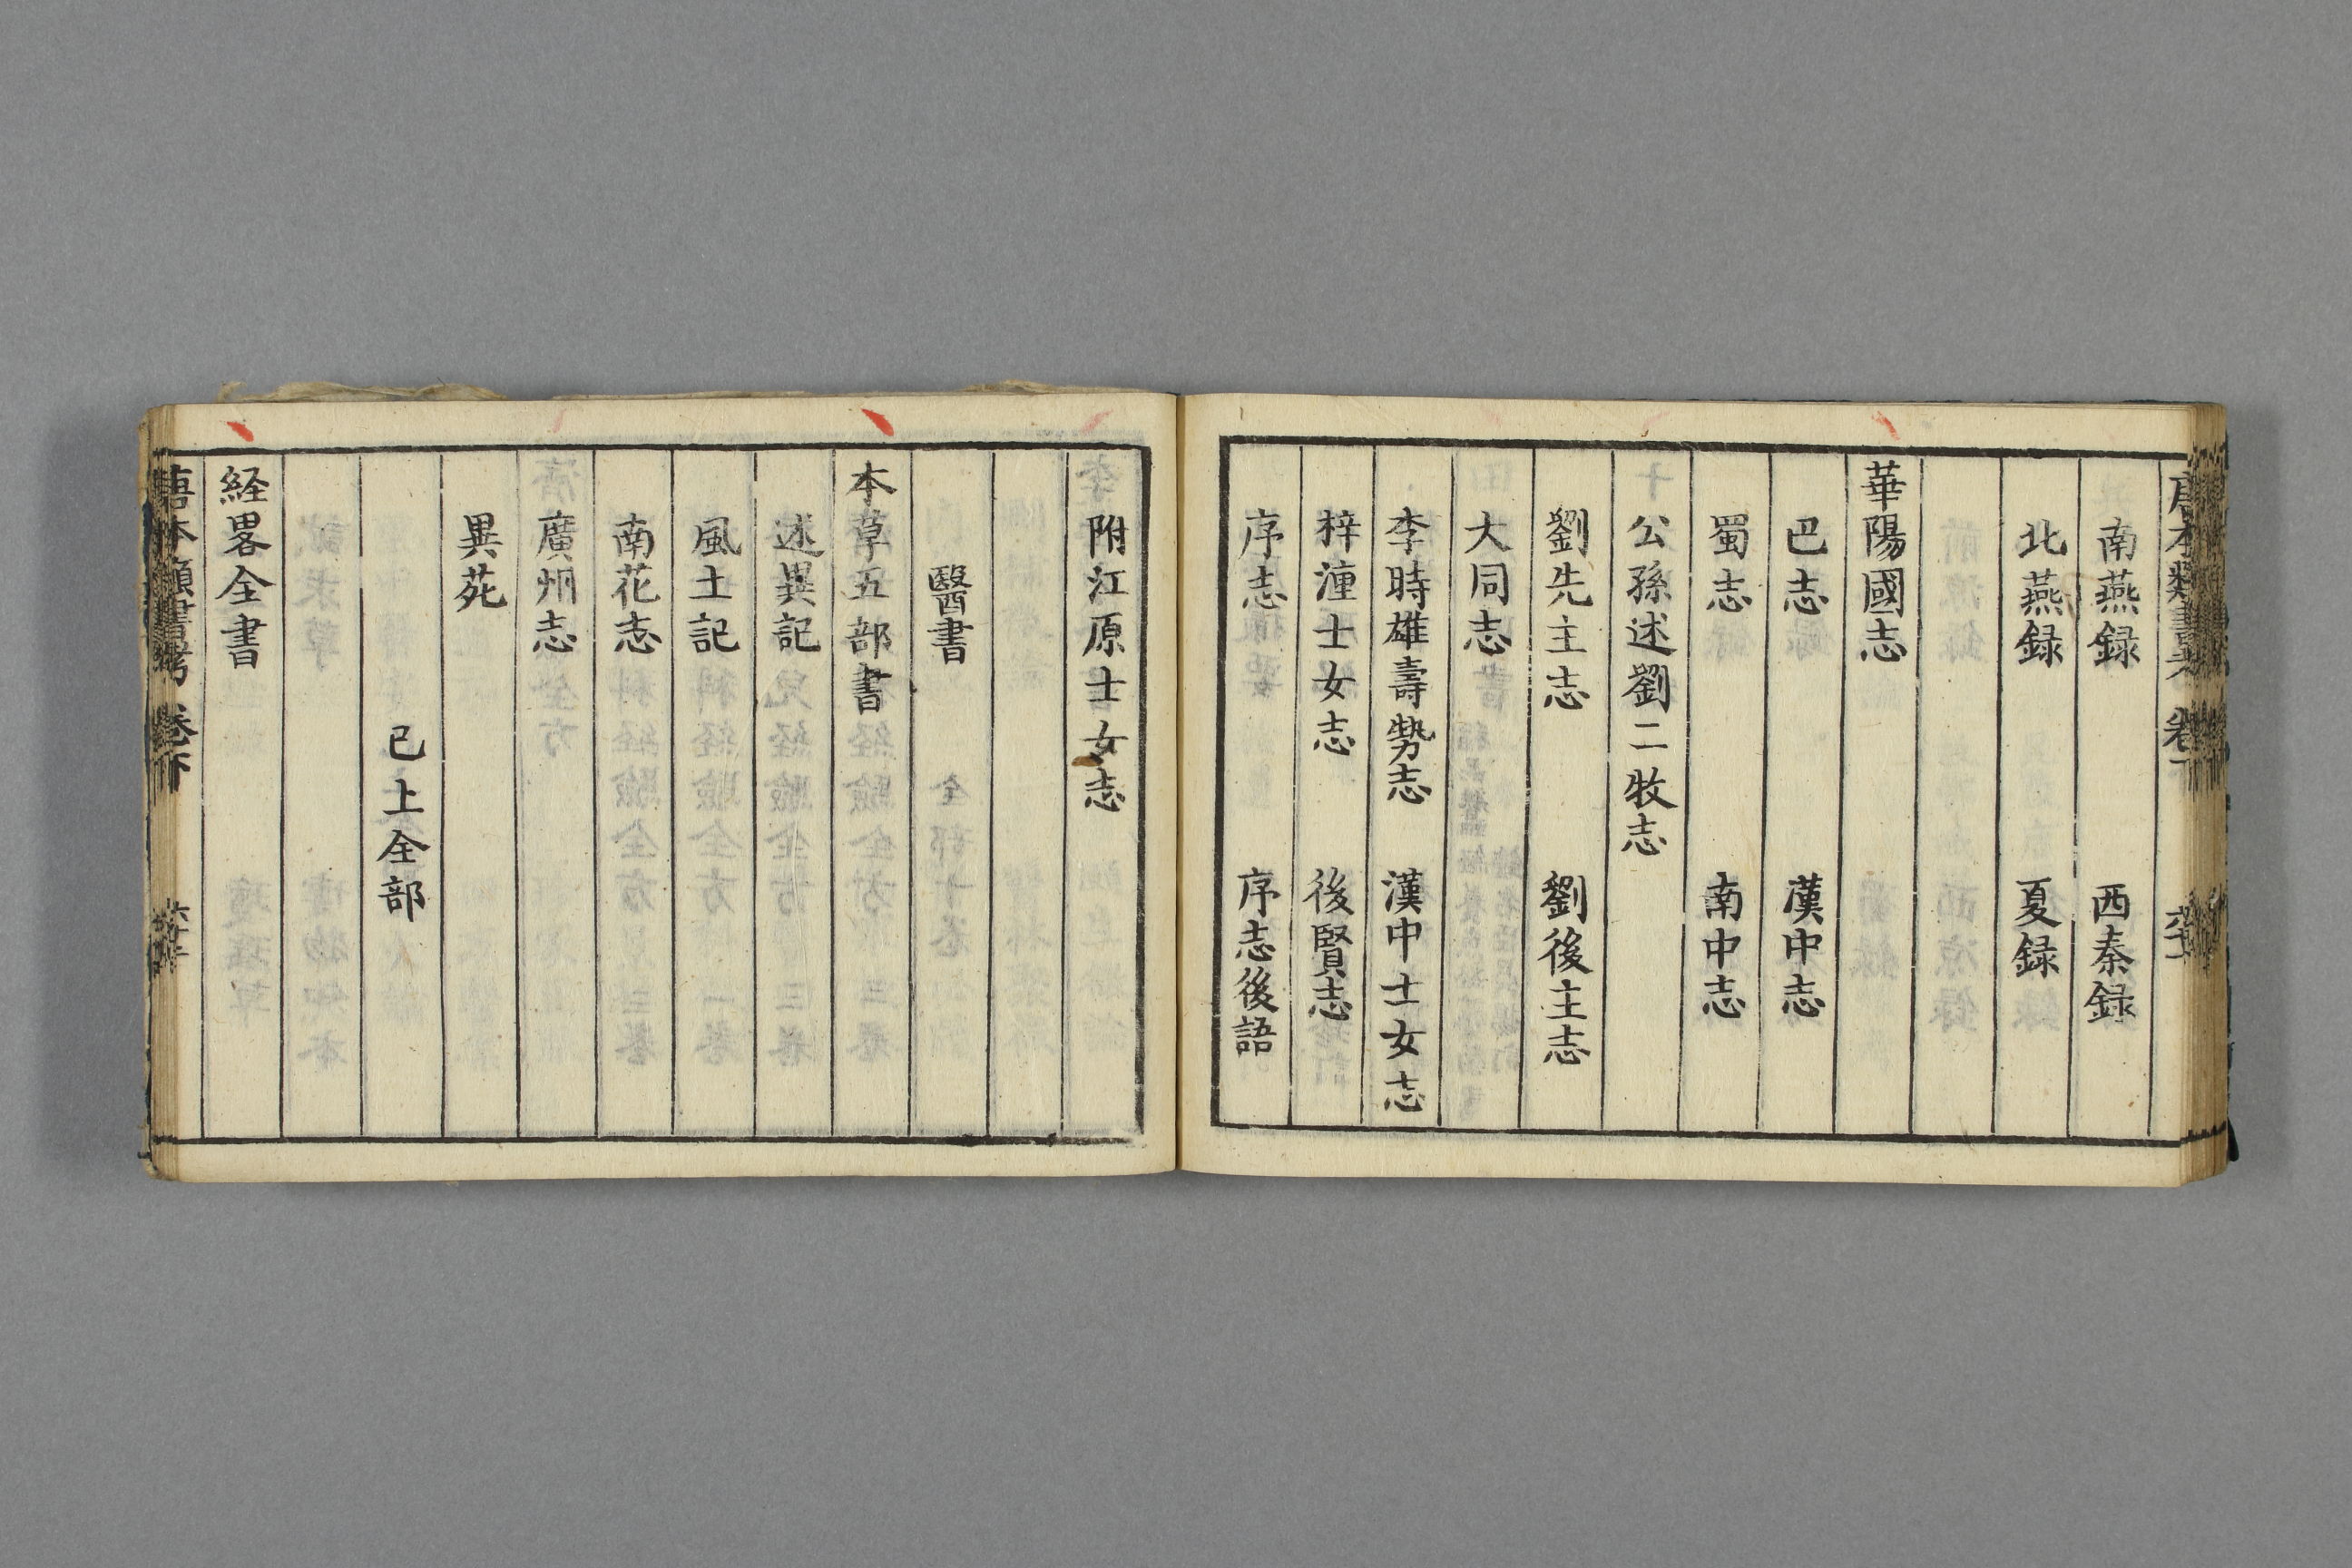 唐本類書考 卷下
南燕録 西秦録
北燕録 夏録
華陽國志
巴志 漢中志
蜀志 南中志
公孫述劉二牧志
劉先主志 劉後主志
大同志
李時雄壽勢志 漢中士女志
梓潼士女志 後賢志
序志 序志後語
附江原士女志
醫書
本草五部書
述異記
風土記
南花志
廣州志
異苑
已上全部
経畧全書
唐本類書考 卷下